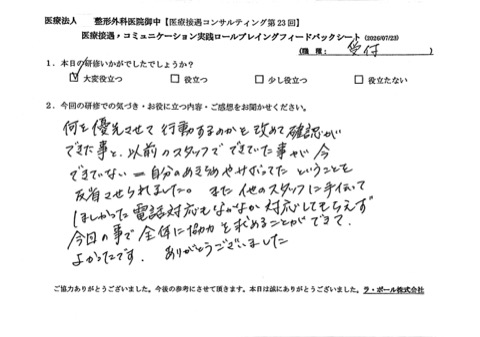 医療法人　　整形外科医院御中【医療接遇コンサルティング第23回】
医療接遇・コミュニケーション実践ロールプレイングフィードバックシート（2026/07/23）
（職種： 受付 ）
1．本日の研修いかがでしたでしょうか？
☑ 大変役立つ　□ 役立つ　□ 少し役立つ　□ 役立たない
2．今回の研修での気づき・お役に立つ内容・ご感想をお聞かせください。
何を優先させて行動するのかを改めて確認が
できた事と、以前のスタッフでできていた事が今
できていない＝自分のあきらめやサボってた ということを
反省させられました。 また他のスタッフに手伝って
ほしかった電話対応もなかなか対応してもらえず
今回の事で全体に協力を求めることができて、
よかったです。 ありがとうございました
ご協力ありがとうございました。今後の参考にさせて頂きます。本日は誠にありがとうございました。 ラ・ポール株式会社